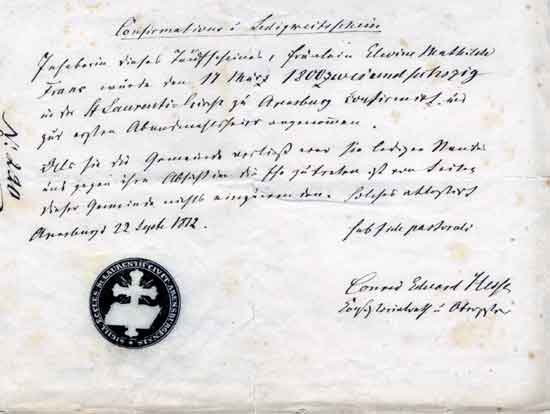 Confirmations u Ledigkeitsschein
Inhaberin dieses Taufscheines, Fräulein Elwine Mathilde
Frans wurde den 17 März 1800zweiundsechzig
in der St Laurentii-Kirche zu Arensburg confirmirt und
zur ersten Abendmahlsfeier angenommen.
Als sie die Gemeinde verließ war sie ledigen Standes
und gegen ihre Absicht in die Ehe zu treten ist von Seiten
dieser Gemeinde nichts einzuwenden. Solches attestirt
Arensburg 22 Sept. 1872.
sub fide pastorali
Conrad Eduard Hesse
u
SIGILL ECCLES St LAURENTII CIVIT ARENSBURGENSIS